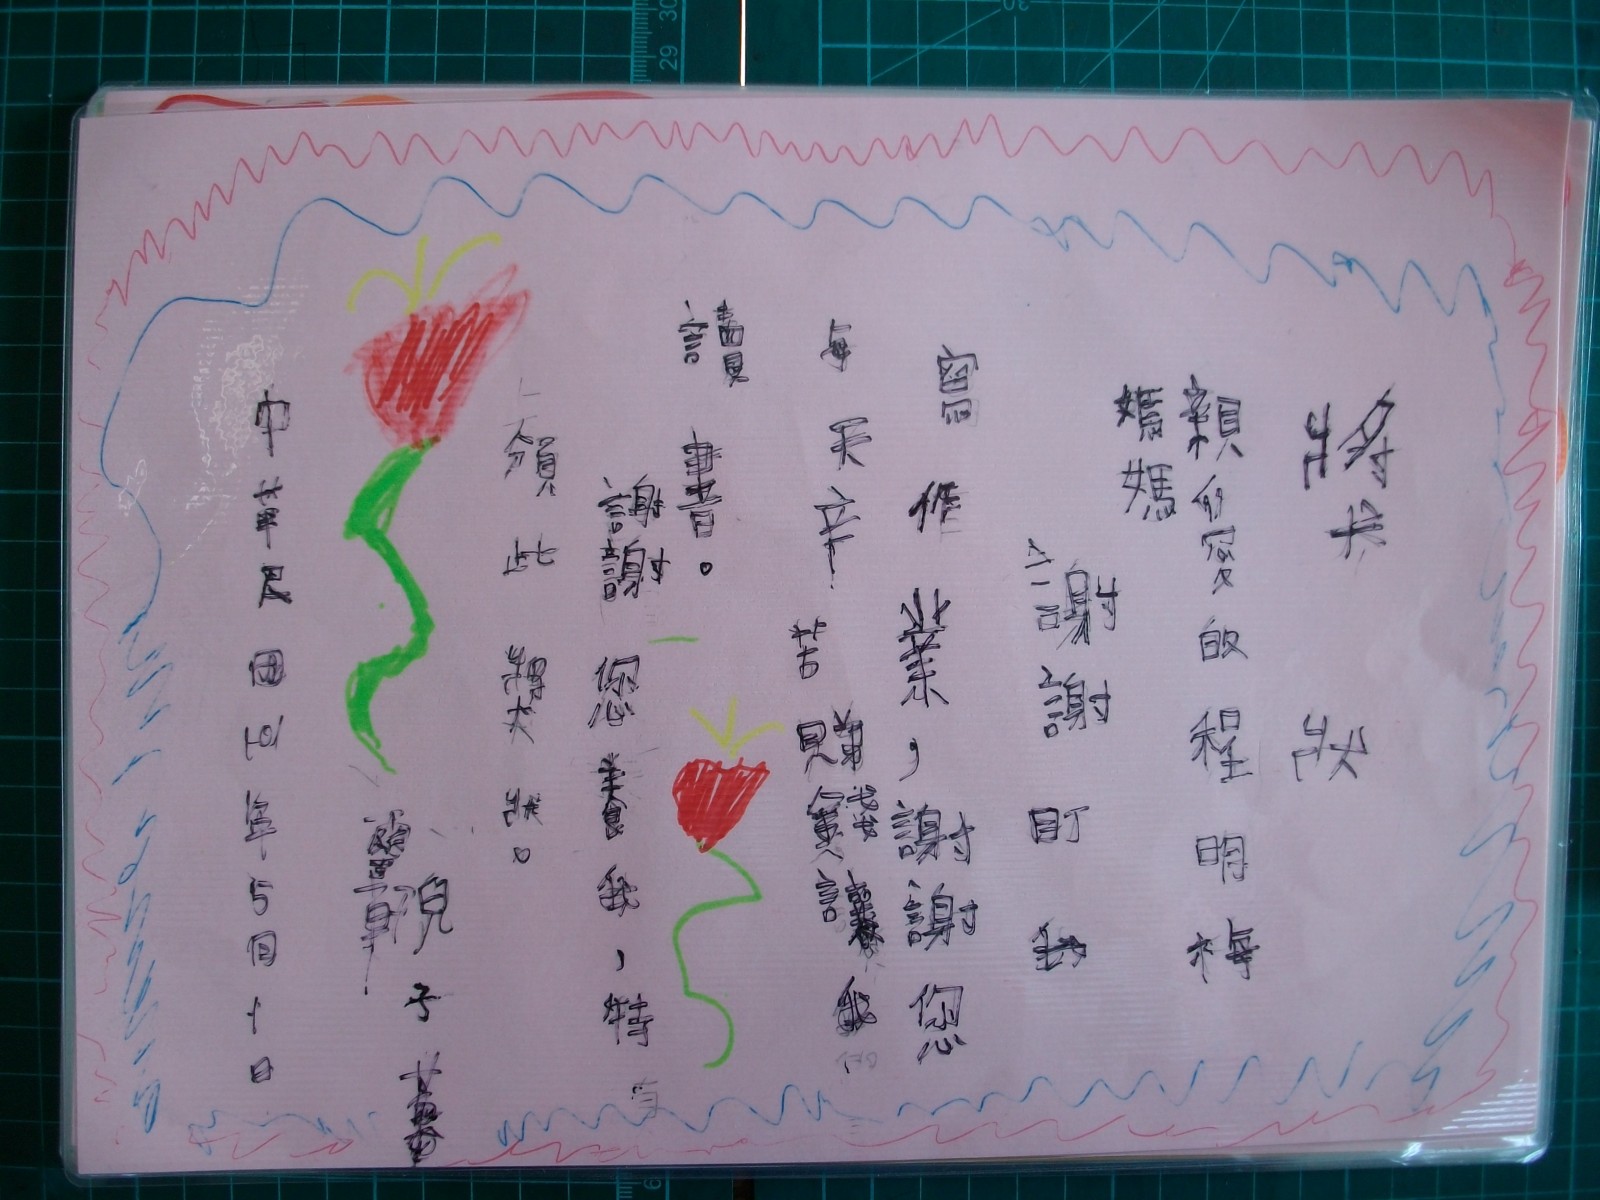 將卡 狀
親 愛的程明梅
媽媽
謝謝 盯 我
寫作業，謝謝您
每天辛苦賺錢讓我
讀書。
謝謝您養我，特
頒此 獎狀。
子
中華民國 年5個1日